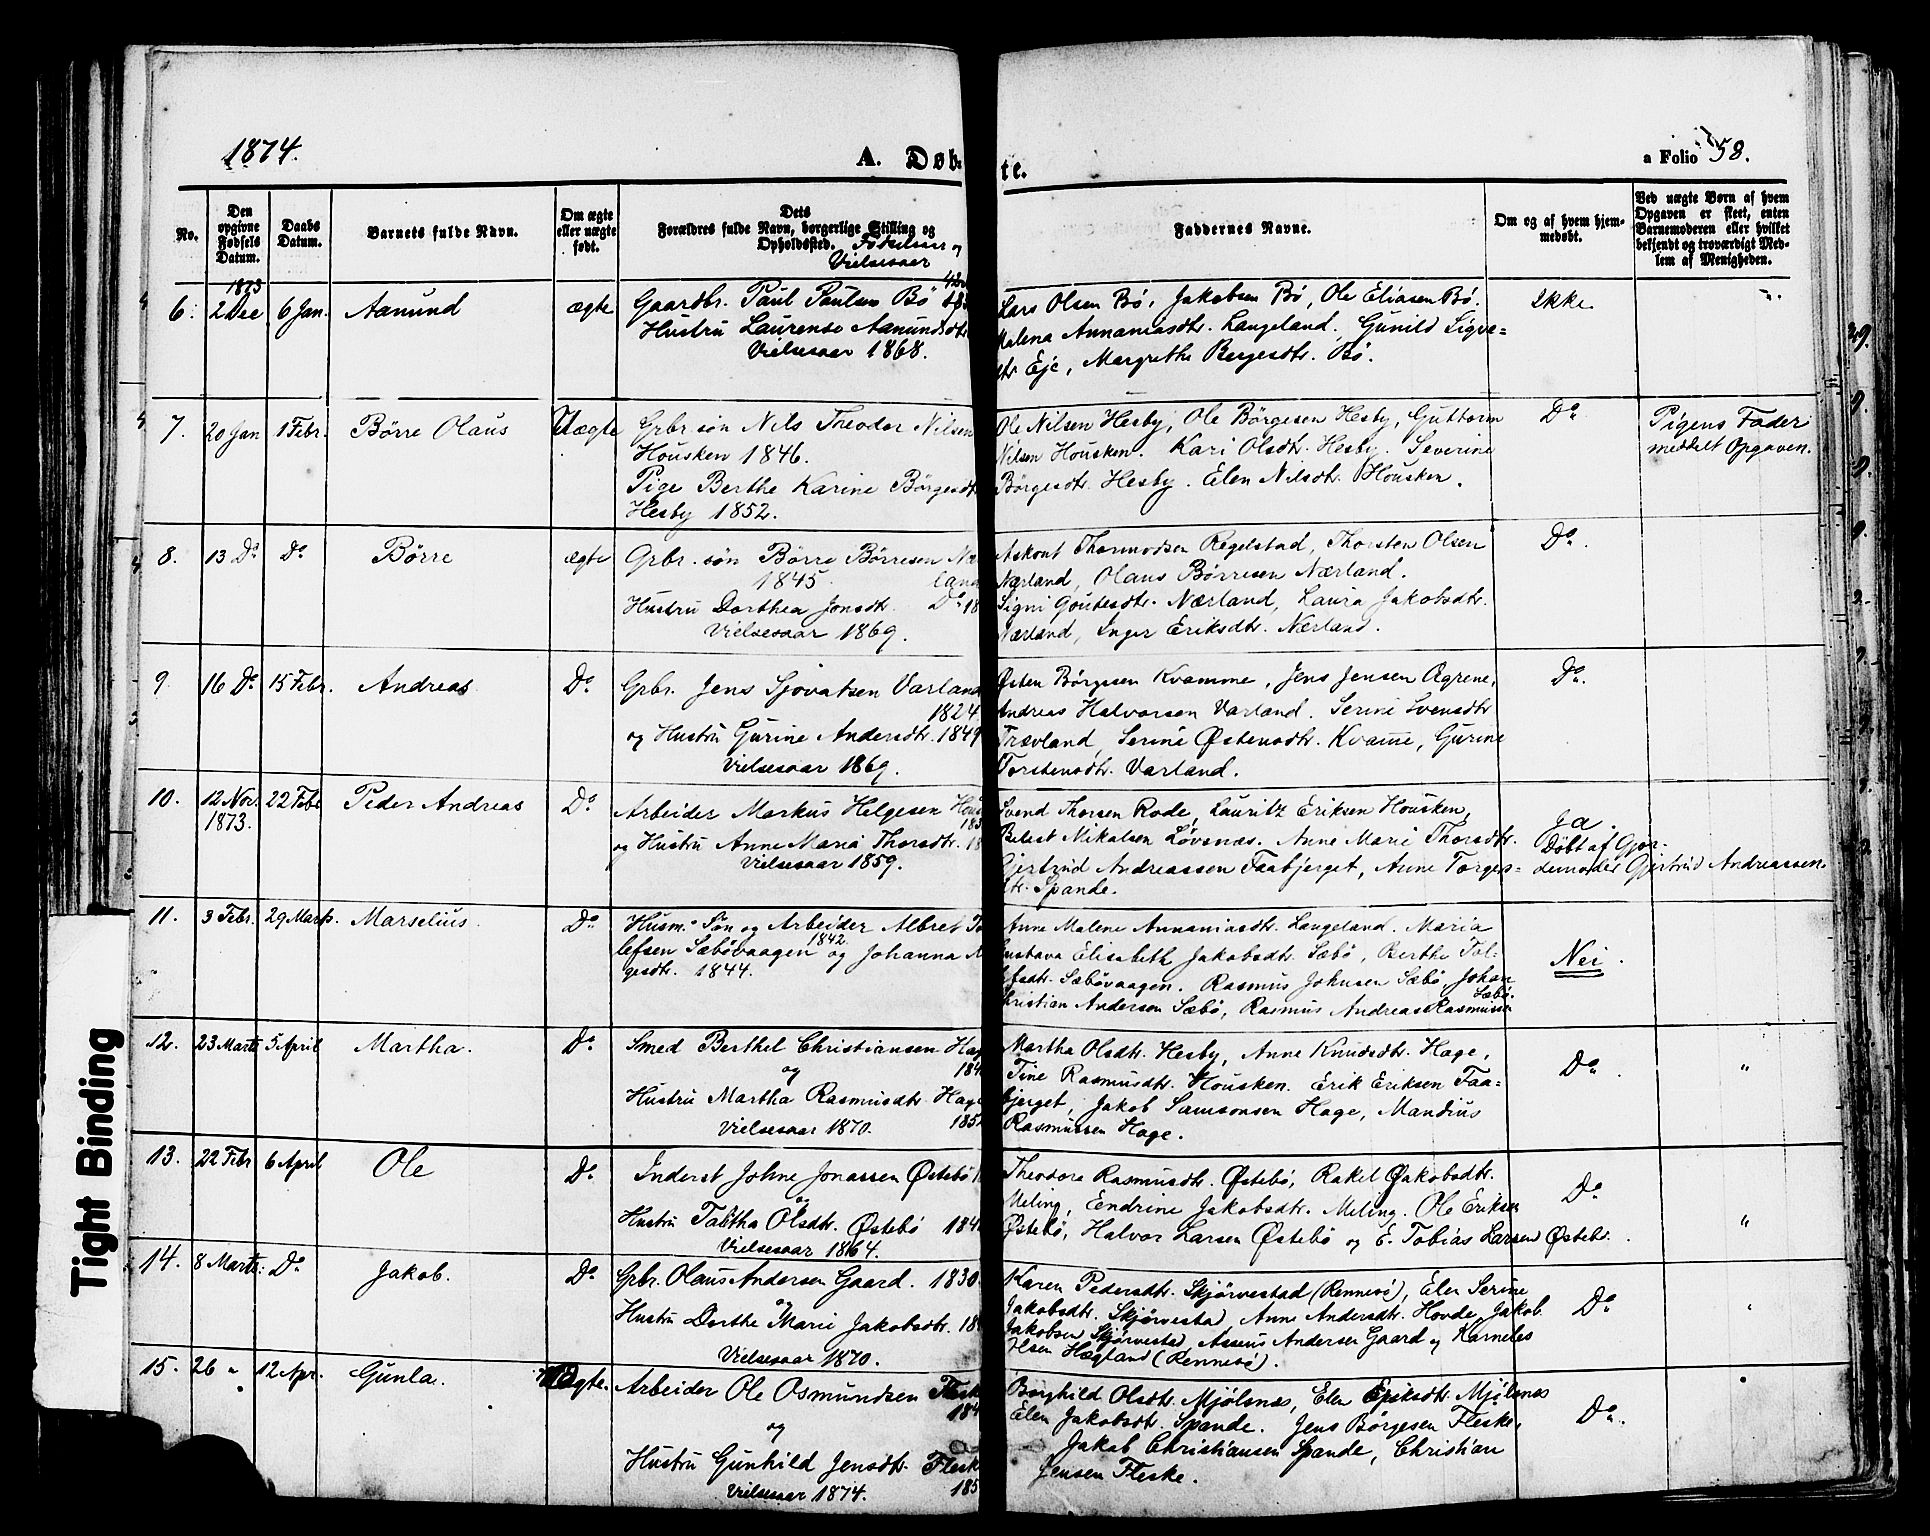 1874.
A. Døb-
te.
a Folio 58.
No.
Den opgivne Fødsels Datum.
Daabs Datum.
Barnets fulde Navn.
Om ægte eller uægte født.
Dets Forældres fulde Navn, borgerlige Stilling og Opholdssted. Fødselsaar og Vielsesaar
Faddernes Navne.
Om og af hvem hjemmedøbt.
Ved uægte Børn af hvem Opgaven er skeet, enten Barnemoderen eller hvilket bekjendt og troværdigt Medlem af Menigheden.
1873
6. 2 Dec 6 Jan. Aanund ægte
Gaardbr. Paul Paulsen Bø
Hustru Laurense Aanundsdtr
Vielsesaar 1868.
Lars Olsen Bø, Jakobsen Bø, Ole Eliasen Bø.
Malena Annaniasdtr. Langeland. Gunild Sigve=
dtr Eje, Margrethe Bergesdtr. Bø.
Ikke
7. 20 Jan 1 Febr. Børre Olaus Uægte
Grbr. søn Nils Theodor Nilsen
Housken 1846.
Pige Berthe Karine Børgesdtr
Hesby 1852.
Ole Nilsen Hesby, Ole Børgesen Hesby, Guttorm
Nilsen Housken. Kari Olsdtr. Hesby. Severine
Børgesdtr. Hesby. Elen Nilsdtr. Housken.
Do
Pigens Fader
meddelt Opgaven.
8. 13 Do Do Børre ægte
Grbr. søn Børre Børresen Nær
land
1845.
Hustru Dorthea Jonsdtr. Do 18
Vielsesaar 1869.
Askout Thormodsen Regelstad, Thorsten Olsen
Nærland, Olaus Børresen Nærland.
Signi Goutesdtr. Nærland, Laura Jakobsdtr.
Nærland, Inger Eriksdtr. Nærland.
Do
9 16 Do 15 Febr. Andreas Do
Grbr. Jens Sjovatsen Varland
1824
og Hustru Gurine Andersdtr. 1849
Vielsesaar 1869.
Østen Børgesen Kvamme, Jens Jensen Agrene,
Andreas Halvorsen Varland. Serine Svensdtr
Trævland, Serine Østensdtr. Kvame, Gurine
Torstensdtr. Varland.
Do.
10. 12 Nov. 1873. 22 Febr Peder Andreas Do
Arbeider Markus Helgesen Hous
og Hustru Anne Maria Thorsdtr. 18
Vielsesaar 1859.
Svend Thorsen Rode, Lauritz Eriksen Housken,
Betest Mikalsen Løvsnæs. Anne Marie Thorsdtr.
Gjertrud Andreassen Faabjerget, Anne Torgers=
dtr. Spande.
Ja.
Døbt af Gjor-
demoder Gjertrud Andreassen.
11. 3 Febr. 29 Marts. Marselius. Do
Husm. Søn og Arbeider Albret To
lefsen Sæbøvaagen 1842. og Johanna
gesdtr. 1844.
Anne Malene Annaniasdtr. Langeland. Maria
Gustava Elisabeth Jakobsdtr. Sæbø, Berthe Tol-
lefsdtr. Sæbøvaagen. Rasmus Johnsen Sæbø, Johan
Christian Andersen Sæbø, Rasmus Andreas Rasmussen Sæbø.
Nei.
12. 23 Marts 5 April Martha. Do
Smed Berthel Christiansen Hag
og
Hustru Martha Rasmusdtr. Hage
Vielsesaar 1870.
Martha Olsdtr. Hesby, Anne Knudsdtr. Hage,
Tine Rasmusdtr. Housken. Erik Eriksen Faa-
bjerget, Jakob Samsonsen Hage, Mandius
Rasmussen Hage.
Do
"
13. 22 Febr 6 April Ole Do
Inderst Johne Jonassen Østebø
og
Hustru Tabitha Olsdtr. Østebø 184
Vielsesaar 1864.
Theodora Rasmusdtr. Østebø, Rakel Jakobsdtr.
Meling, Endrine Jakobsdtr. Meling. Ole Eriksen
Østebø, Halvor Larsen Østebø og E. Tobias Larsen Østebø.
Do
"
14. 8 Marts. Do Jakob. Do
Grbr. Olaus Andersen Gaard. 1830.
og
Hustru Dorthe Marie Jakobsdtr. 18
Vielsesaar 1870.
Karen Pedersdtr. Skjørvestad (Rennesø), Elen Serine
Jakobsdtr. Skjørvestad, Anne Andersdtr. Hovde, Jakob
Jakobsen Skjørvestad, Assens Andersen Gaard og Karneles
Olsen Hægland (Rennesø).
Do
15. 26 " 12 Apr. Gunla. Ægte.
Arbeider Ole Osmundsen Flesk
184
og
Hustru Gunhild Jensdtr. Flesk
185
Vielsesaar 1874.
Borghild Olsdtr. Mjølsnæs, Elen Eriksdtr. Mjølsnæs
Elen Jakobsdtr. Spande. Jens Børgesen Fleske,
Jakob Christiansen Spande, Christian
Jensen Fleske.
Do.
Tight Binding